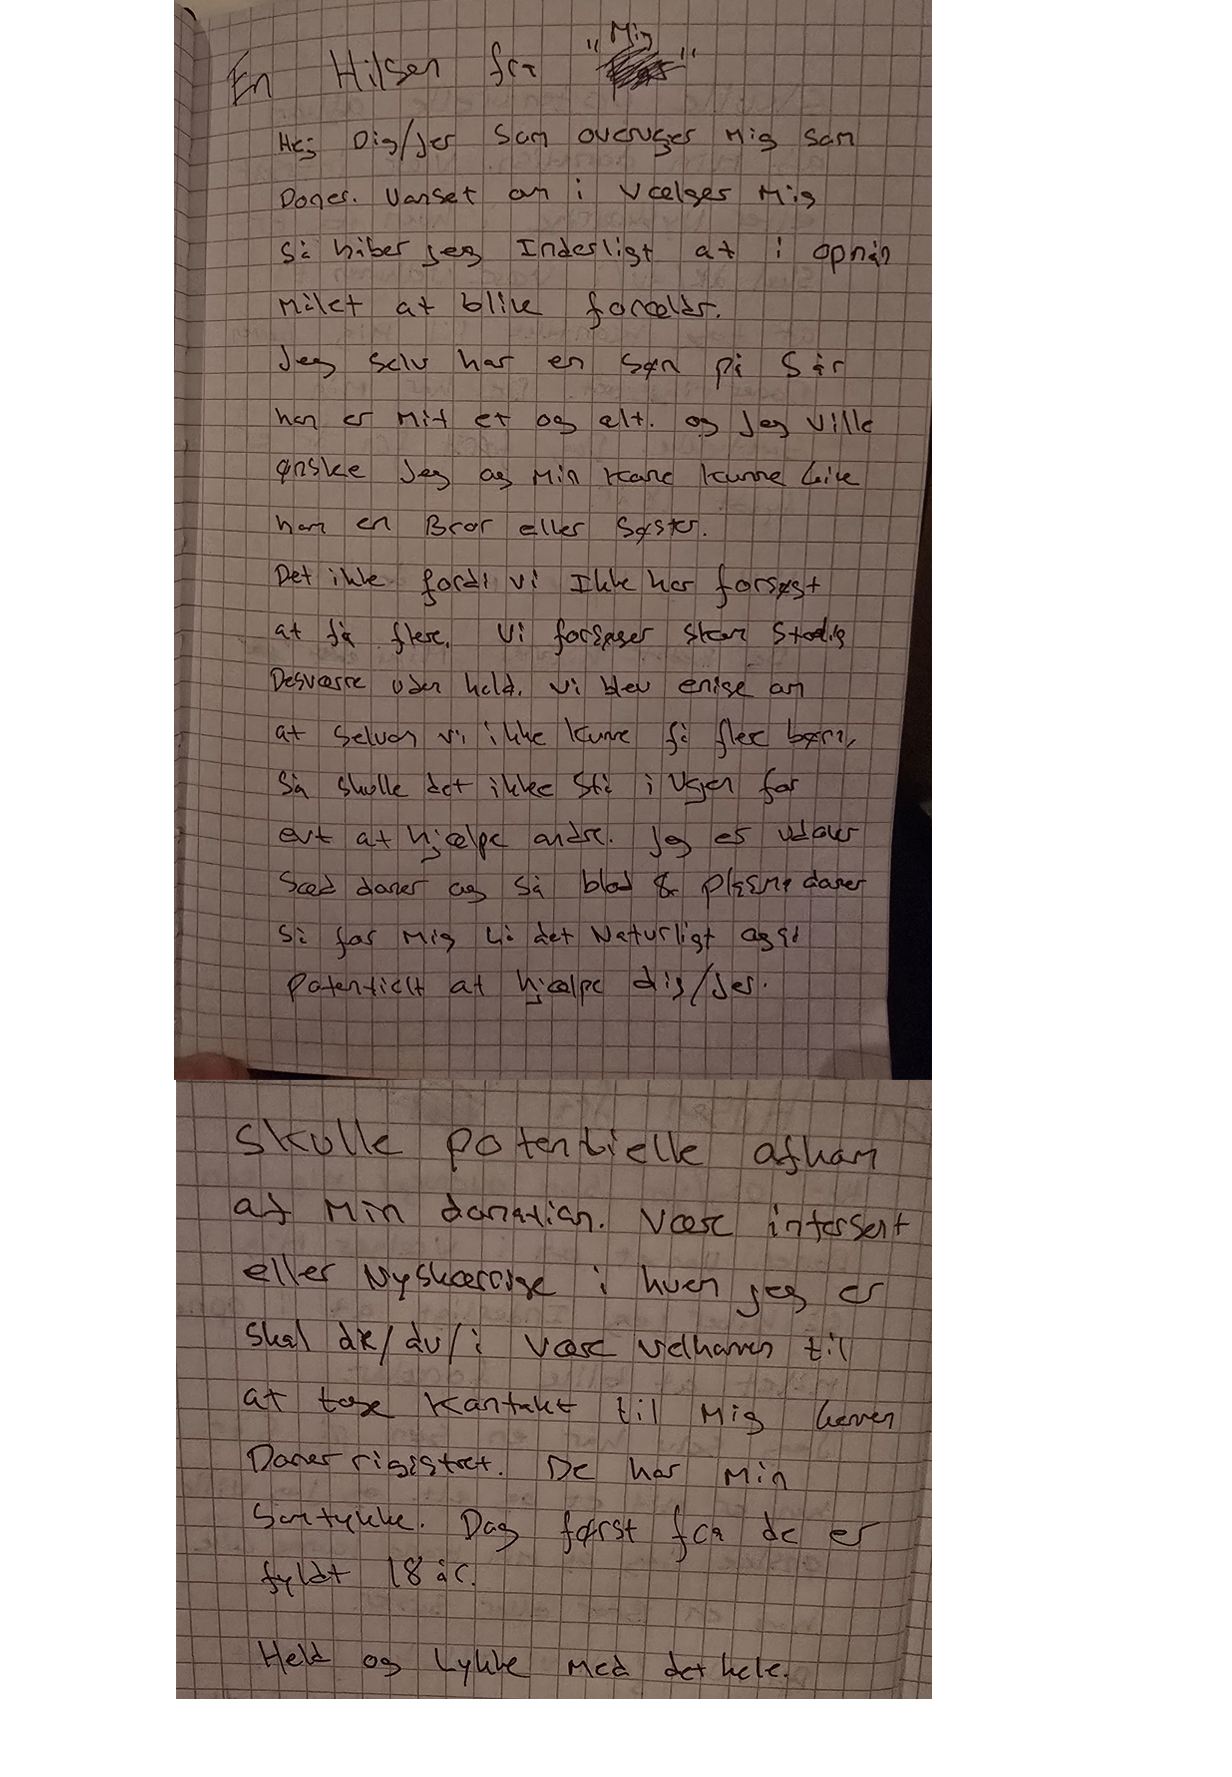 En Hilsen fra "Mig"
Hej Dig/Jer Som overvejer Mig som
Doner. Uanset om i Vælger Mig
så håber jeg Inderligt at i opnår
Målet at blive forældr.
Jeg selv har en Søn på 5 år
han er Mit et og alt. og Jeg ville
ønske Jeg og Min Kone Kunne Give
ham en Bror eller Søster.
Det ikke fordi vi Ikke har forsøgt
at få flere. Vi forsøger skam Stadig
Desværre uden held. Vi blev enige om
at selvom vi ikke Kunne få flere børn,
Så skulle det ikke stå i vejen for
evt at hjælpe andre. Jeg er udover
Sæd doner og så blod & Plasma doner
så for Mig Gi det Naturligt også
Potentielt at hjælpe dig/Jer.
Skulle potentielle afkom
af Min donation. Være intersert
eller Nyskærrige i hvem jeg er
Skal de/du/i være velkomen til
at tage Kontakt til Mig Gennem
Doner rigistret. De har Min
Samtykke. Dog først fra de er
fyldt 18 år.
Held og Lykke Med det hele.